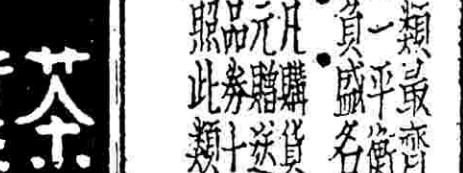 類最齊
一平衡
負盛名
凡購貨
元贈送
品券十
照此類
茶